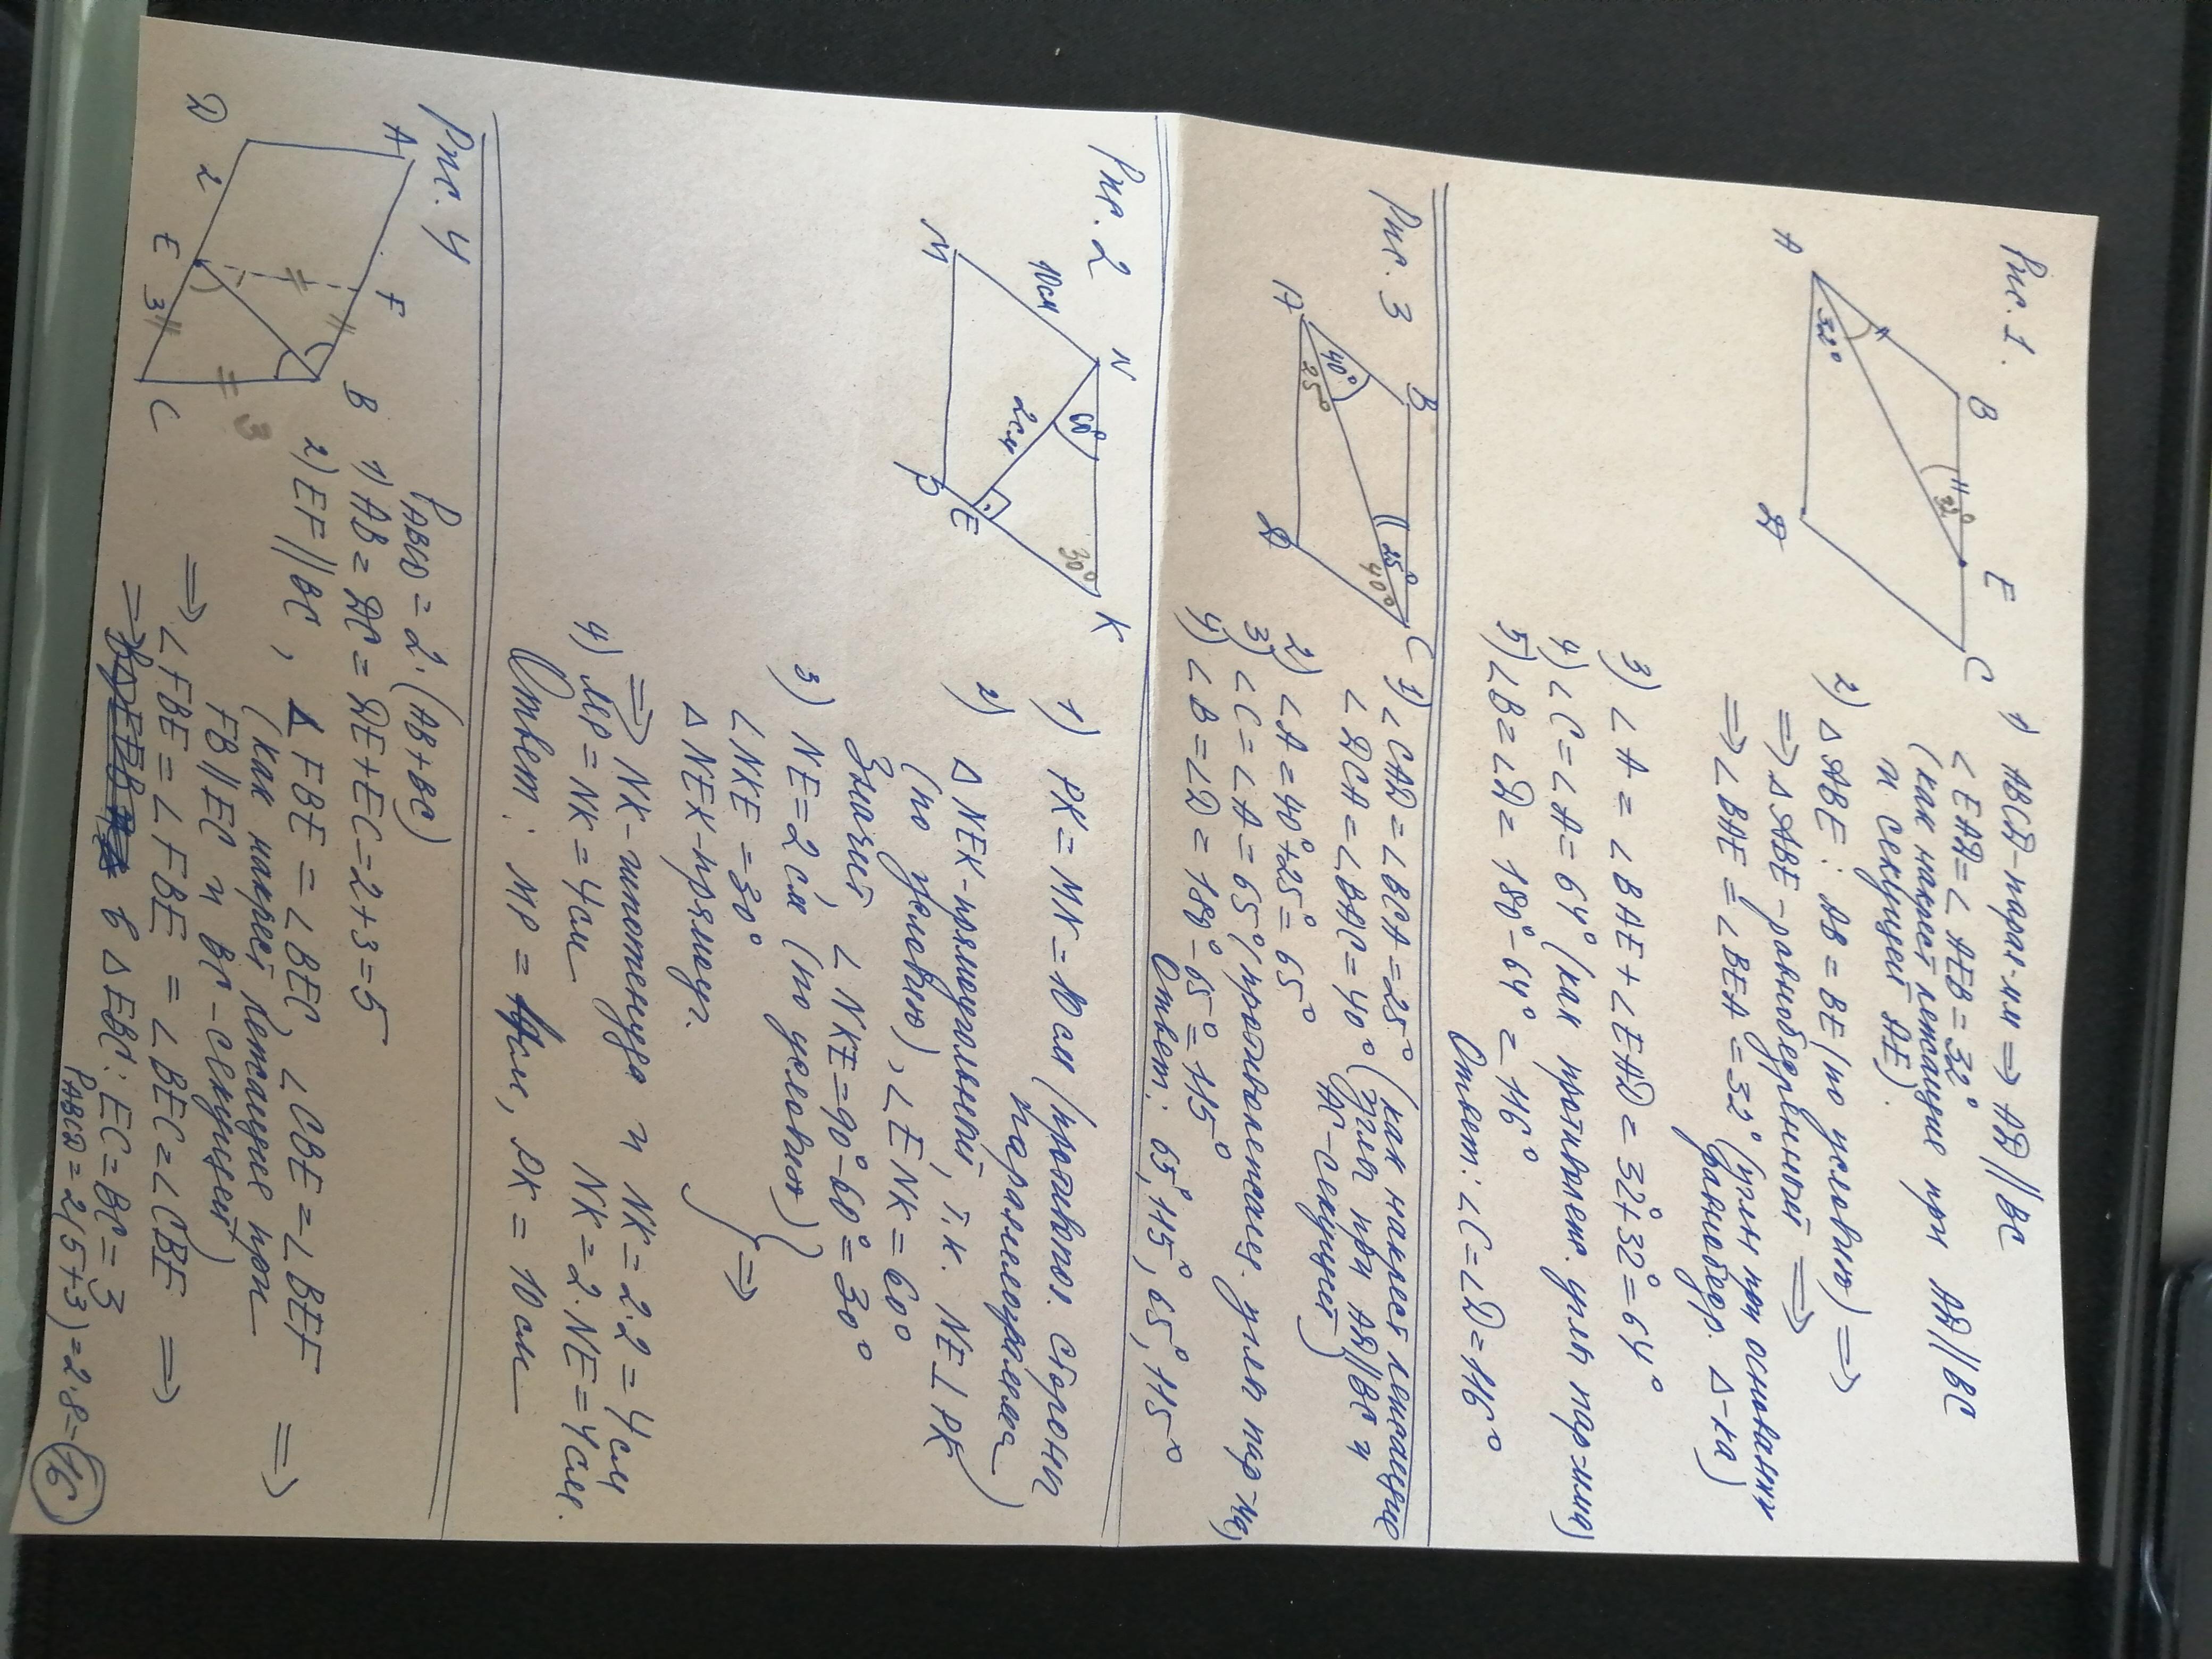 Рис. 1.
A
B
E
C
D
32°
32°
1) ABCD - парал-мм ⇒ AD || BC
∠EAD = ∠AEB = 32°
(как накрест лежащие при AD || BC
и секущей AE).
2) △ABE: AB = BE (по условию) ⇒
⇒ △ABE - равнобедренный ⇒
⇒ ∠BAE = ∠BEA = 32° (углы при основании
равнобедр. △-ка)
3) ∠A = ∠BAE + ∠EAD = 32° + 32° = 64°
4) ∠C = ∠A = 64° (как противолеж. углы пар-мма)
5) ∠B = ∠D = 180° - 64° = 116°
Ответ: ∠C = ∠D = 116°
Рис. 3
A
B
C
D
40°
25°
25°
40°
1) ∠CAD = ∠BCA = 25° (как накрест лежащие
∠DCA = ∠BAC = 40° углы при AD || BC и
AC - секущей)
2) ∠A = 40° + 25° = 65°
3) ∠C = ∠A = 65° (противолежащ. углы пар-ма)
4) ∠B = ∠D = 180° - 65° = 115°
Ответ: 65°, 115°, 65°, 115°
Рис. 2
M
N
K
P
E
10см
60°
2см
30°
1) PK = MN = 10 см (противпол. стороны
параллелограмма)
2) △NEK - прямоугольный, т.к. NE ⊥ PK
(по условию), ∠ENK = 60°
Значит, ∠NKE = 90° - 60° = 30°
3) NE = 2 см (по условию)
∠NKE = 30°
△NEK - прямоуг. } ⇒
⇒ NK - гипотенуза и NK = 2·2 = 4 см
NK = 2·NE = 4 см.
4) MP = NK = 4 см
Ответ: MP = 4 см, PK = 10 см
Рис. 4
A
F
B
D
2
E
3
C
3
P ABCD = 2·(AB+BC)
1) AB = DC = DE + EC = 2 + 3 = 5
2) EF || BC, ∠FBE = ∠BEC, ∠CBE = ∠BEF ⇒
(как накрест лежащие при
FB || EC и BC - секущей)
⇒ ∠FBE = ∠FBE = ∠BEC = ∠CBE ⇒
⇒ в △EBC: EC = BC = 3
P ABCD = 2(5+3) = 2·8 = 16